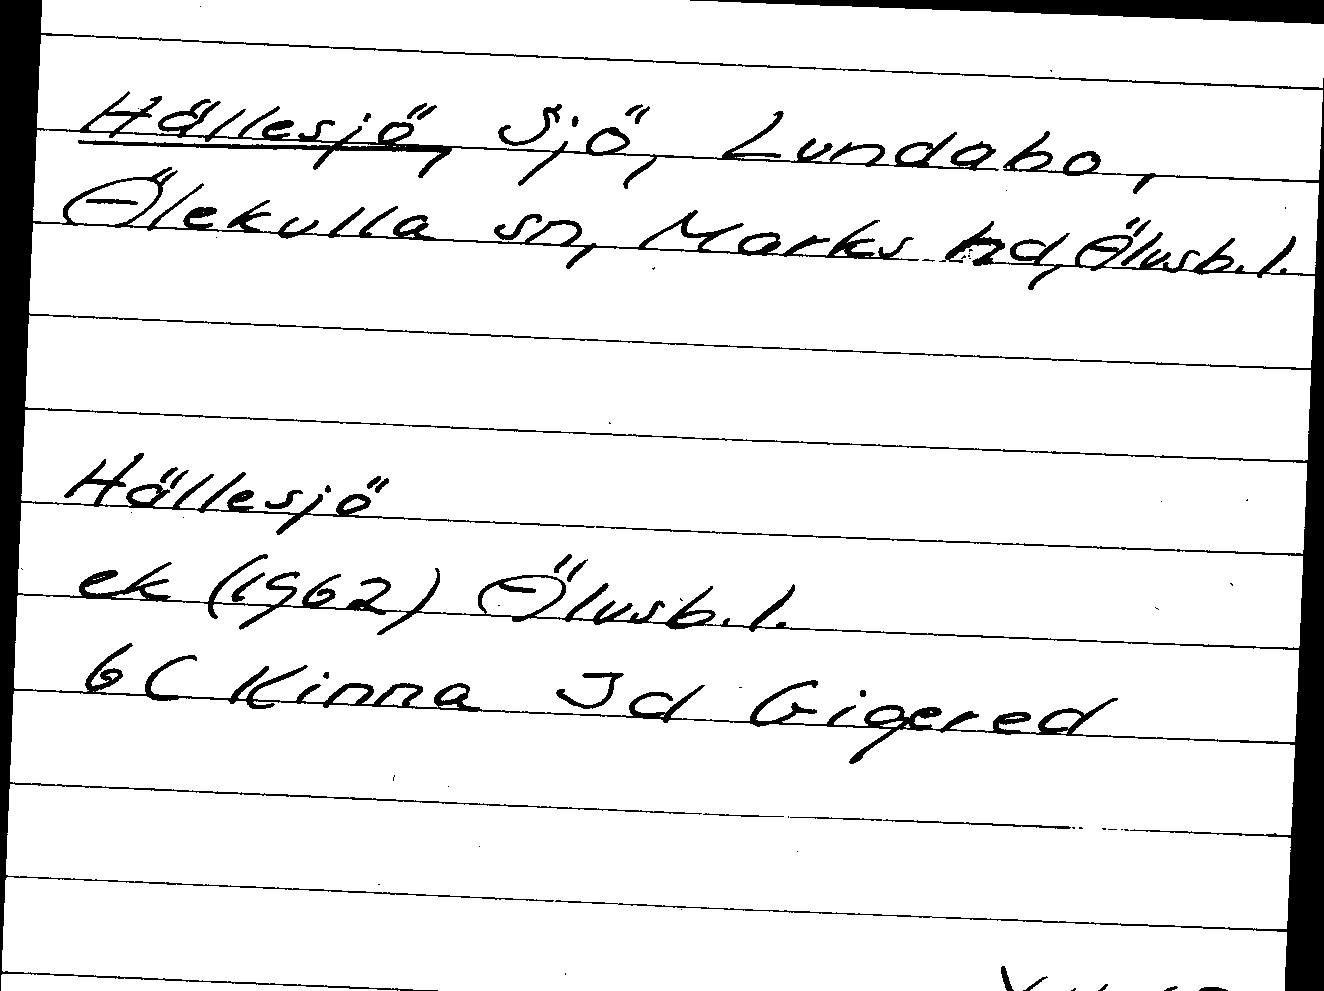 Hällesjö, Sjö, Lundabo,
Ölekulla sn, Marks hd, Älvsb. l.
Hällesjö
ek (1962) Älvsb. l.
6C Kinna Jd Gigered